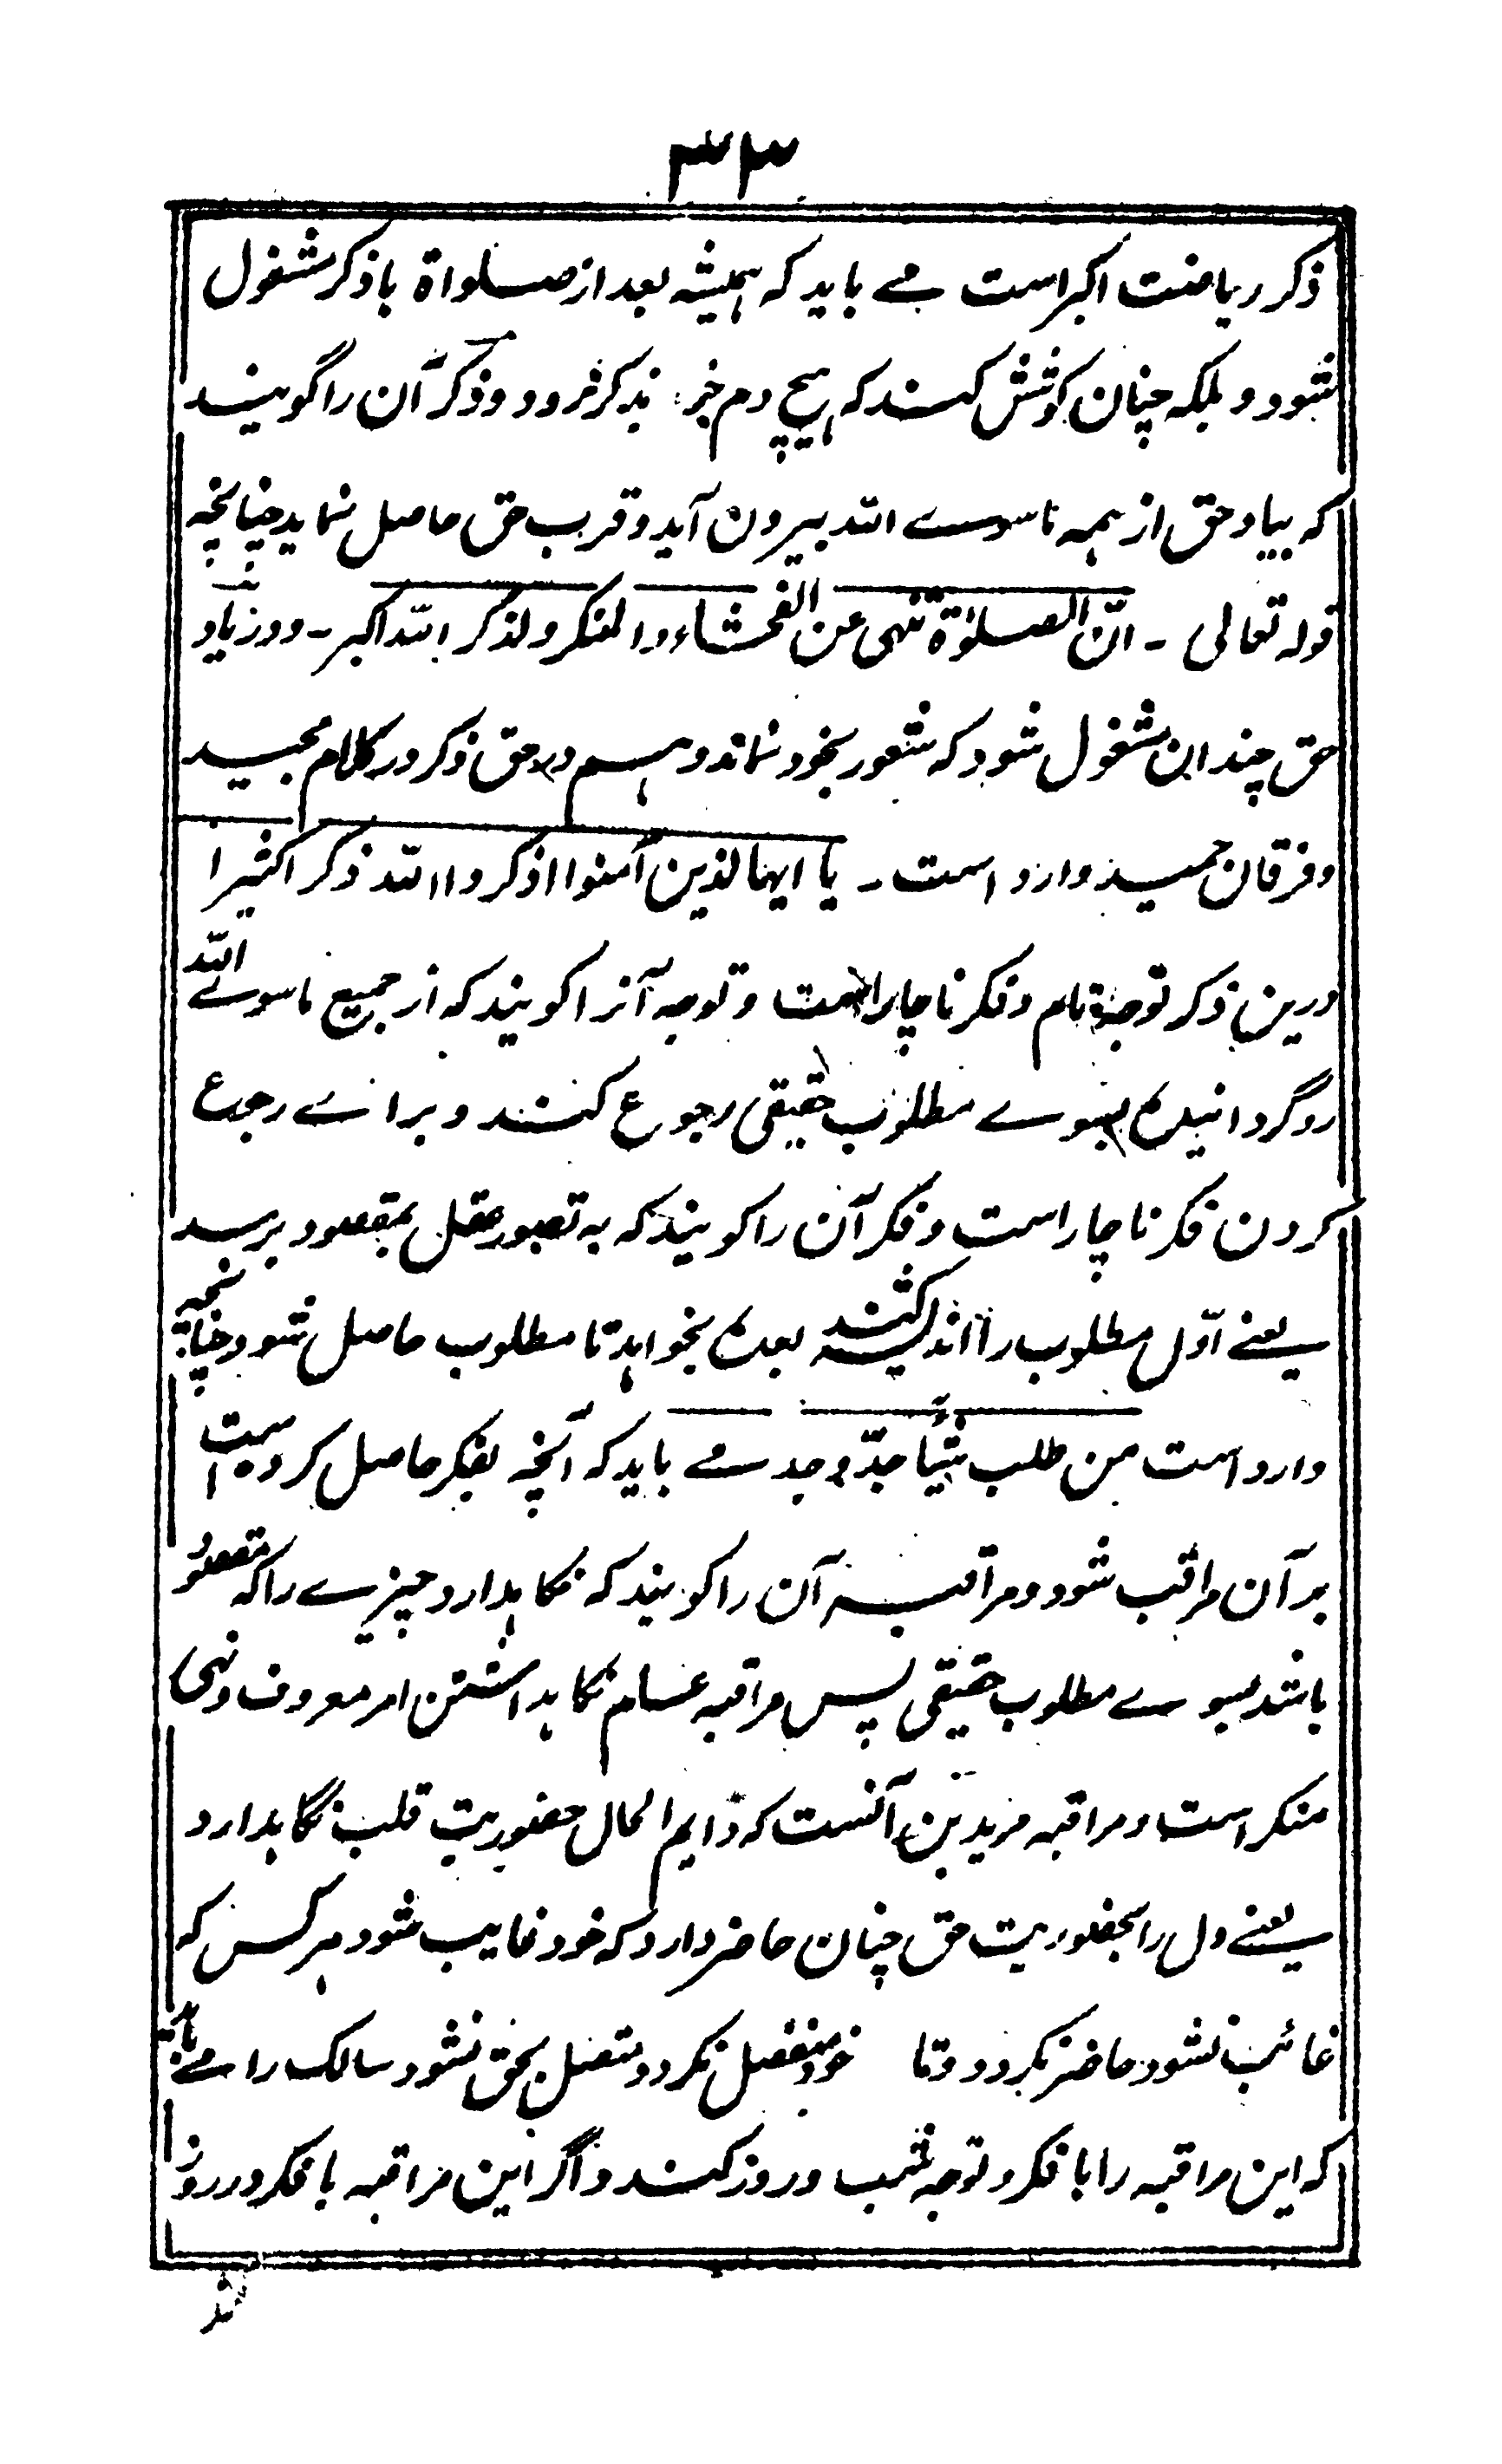 ۳۳
ذکر ریاضت اکبر است مے باید که ہمیشہ بعد از صلواة با ذکر مشغول
شود و بلکہ چنان کوشش کند کہ ہیچ دم جز بذکر نرود و ذکر آن را گویند
کہ بیاد حق از ہمہ ماسوے اللہ بیرون آید و قرب حق حاصل نماید چنانچہ
قولہ تعالی ۔ انّ الصلوٰة تنہی عن الفحشاء والمنکر ولذکر اللہ اکبر ۔ و در یاد
حق چندان مشغول شود کہ شعور بخود نماند و ہم در حق ذکر در کلام مجید
و فرقان حمید وارد است ۔ یا ایہا لذین آمنوا اذکروا اللہ ذکر اکثیرا
درین ذکر توجہ تام و فکر ناچار است و توجہ آنرا گویند کہ از جمیع ماسوے اللہ
روگردانیدہ بسوے مطلوب حقیقی رجوع کند و براے رجوع
کردن فکر ناچار است و فکر آن را گویند کہ بہ تصور عقل بمقصود برسد
یعنے اوّل مطلوب را اندیشہ کند بعدہ بخواہد تا مطلوب حاصل شود چنانچہ
وارد است من طلب شیئاً جدّ وجد مے باید کہ آنچہ بفکر حاصل کردہ است
بر آن مراقب شود و مراقبہ آن را گویند کہ نگاہدارد چیزے را کہ مقصود
باشد بسوے مطلوب حقیقی پس مراقبہ عام نگاہداشتن امر معروف و نہی
منکر است و مراقبہ مریدین آنست کہ دایم الحال حضوریت قلب نگاہدارد
یعنے دل را بحضوریت حق چنان حاضر دارد کہ خود غایب شود ہر کس کہ
غائب نشود حاضر نگردد و تا خود منفصل نگردد متصل بحق نشود سالک را مے باید
کہ این مراقبہ را با فکر و توجہ شب و روز کند و اگر این مراقبہ با فکر در روز